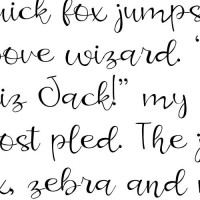 uick fox jumps
bove wizard. “
iz Jack!” my
ost pled. The
x, zebra and